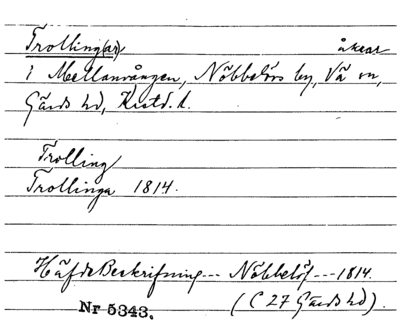 Trolling(ar) åkrar
i Mellanvången, Nöbbelövs by, Vä sn,
Gärds hd, Kristd. l.
Trolling
Trollinga 1814.
HäfdeBeskrifning--- Nöbbelöf---1814.
(C 27 Gärds hd).
Nr 5343.